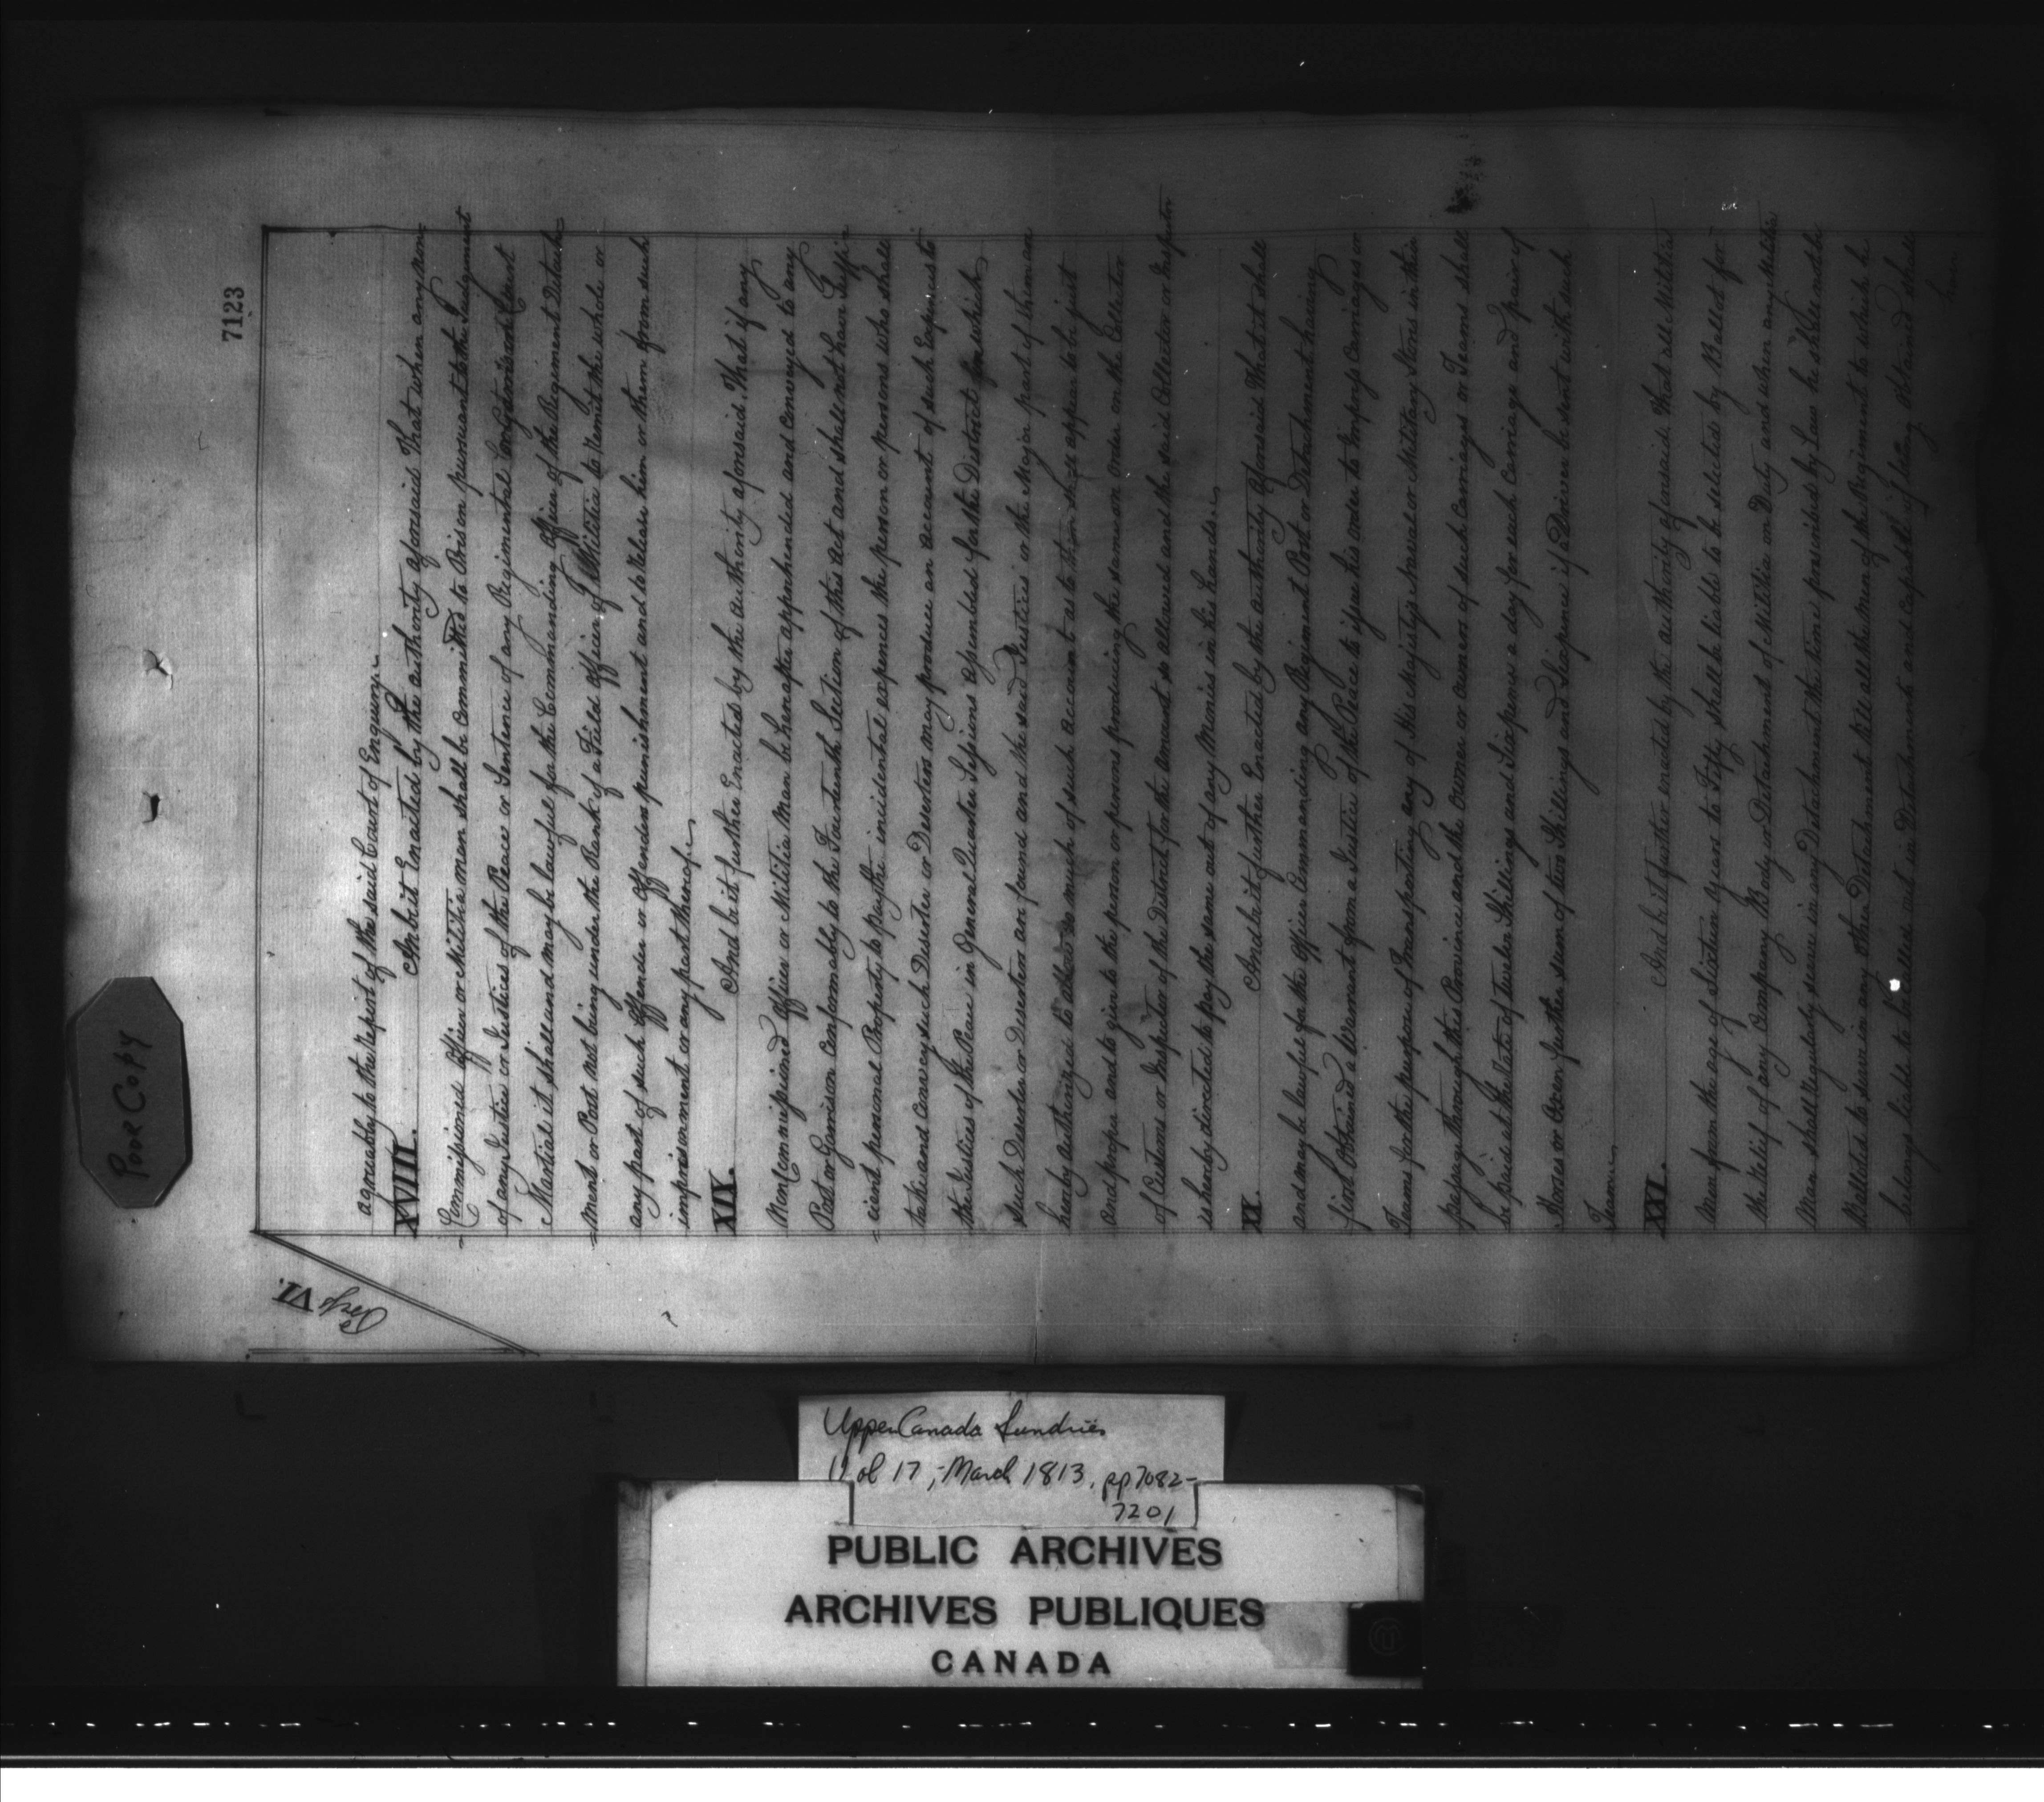 7123
Page VI.
agreeably to the Report of the said Court of Enquiry.
XVIII. And be it Enacted by the authority aforesaid That when any non
Commissioned Officer or Militia man shall be committed to Prison pursuant to the Judgment
of any Justice or Justices of the Peace or Sentence of any Regimental or Garrison Court
Martial it shall and may be lawful for the Commanding Officer of the Regiment Detach
=ment or Post not being under the Rank of a Field Officer of Militia to Remit the whole or
any part of such Offender or Offenders punishment and to Release him or them from such
imprisonment or any part thereof.
XIX. And be it further Enacted by the authority aforesaid That if any
Non Commissioned Officer or Militia Man be hereafter apprehended and conveyed to any
Post or Garrison conformably to the Fourteenth Section of this Act and shall not have Suffi
=cient personal Property to pay the incidental expences the person or persons who shall
take and convey such Deserter or Deserters may produce an account of such Expences to
the Justices of the Peace in General Quarter Sessions assembled for the District in which
such Deserter or Deserters are found and the said Justices or the Major part of them are
hereby authorized to allow so much of such account as to them shall appear to be just
and proper and to give to the person or persons producing the same an order on the Collector
of Customs or Inspector of the District for the amount so allowed and the said Collector or Inspector
is hereby directed to pay the same out of any Monies in his hands.
XX. And be it further Enacted by the authority aforesaid That it shall
and may be lawful for the Officer Commanding any Regiment Post or Detachment having
first obtained a Warrant from a Justice of the Peace to issue his order to Impress Carriages or
Teams for the purpose of Transporting any of His Majesty's Naval or Military Stores in their
passage through this Province and the owner or owners of such Carriages or Teams shall
be paid at the Rate of twelve Shillings and Sixpence a day for each Carriage and pair of
Horses or Oxen further sum of two Shillings and Sixpence if a Driver be sent with such
Team
XXI. And be it further enacted by the authority aforesaid That all Militia
Men from the age of Sixteen years to Fifty shall be liable to be selected by Ballot for
the Relief of any Company Body or Detachment of Militia on Duty and when any Militia
Man shall regularly serve in any Detachment the time prescribed by Law he shall not be
Balloted to serve in any other Detachment till all the Men of the Regiment to which he
belongs liable to be called out in Detachments and capable of being obtained shall
have
POOR COPY
Upper Canada Sundries
Vol 17, - March 1813. pp 7082-
7201
PUBLIC ARCHIVES
ARCHIVES PUBLIQUES
CANADA